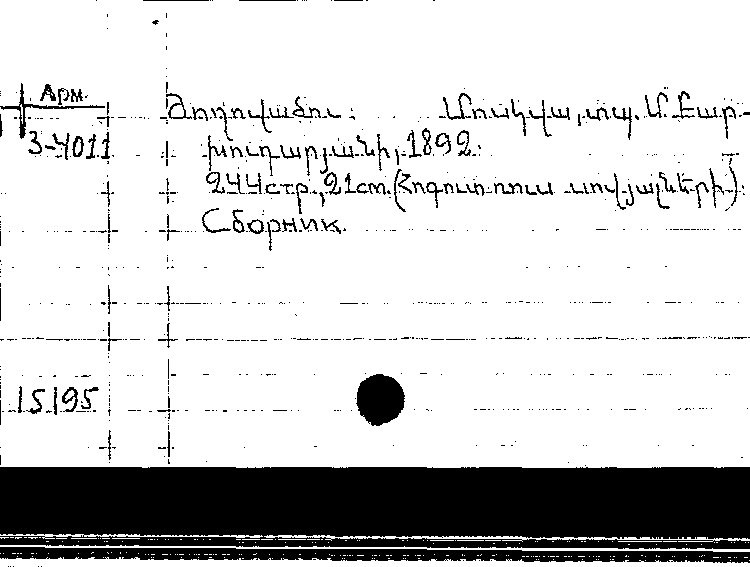 Арм.
3-4011
Ժողովածու: Մոսկվա, տպ. Մ. Բար-
խուդարյանի, 1892.
244стр., 21см. (Հօգուտ սով
Сборник.
15195